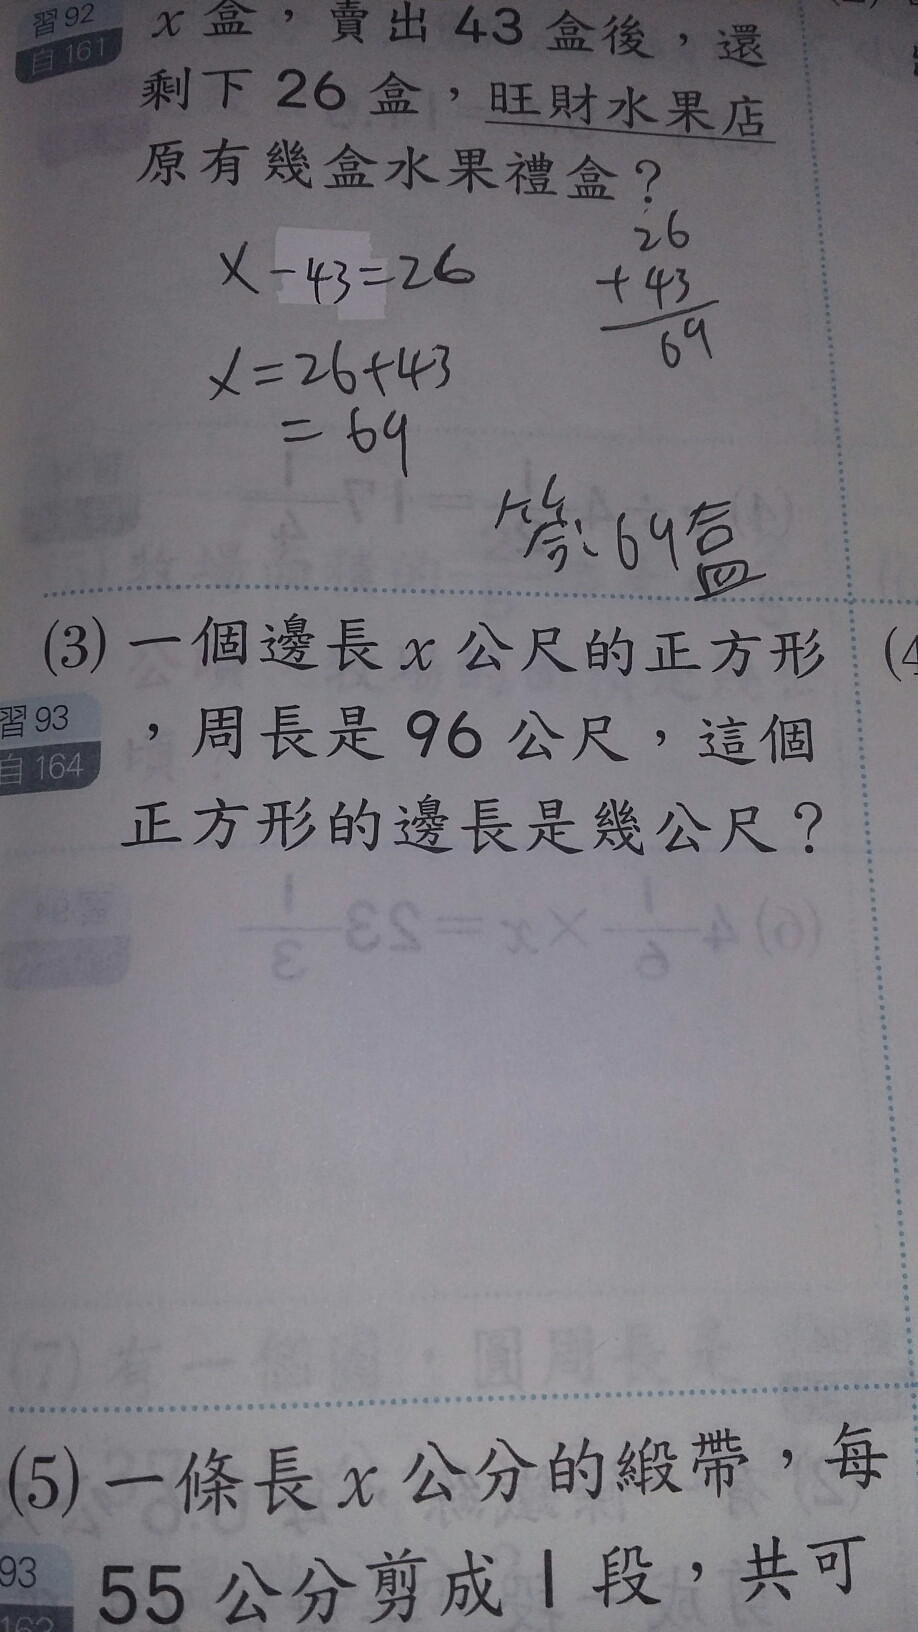 習92
自161
x盒，賣出43盒後，還
剩下26盒，旺財水果店
原有幾盒水果禮盒？
x-43=26
x=26+43
=69
26
+43
69
答:69盒
(3)一個邊長x公尺的正方形
習93
自164
，周長是96公尺，這個
正方形的邊長是幾公尺？
(4
(5)一條長x公分的緞帶，每
93
162
55公分剪成1段，共可